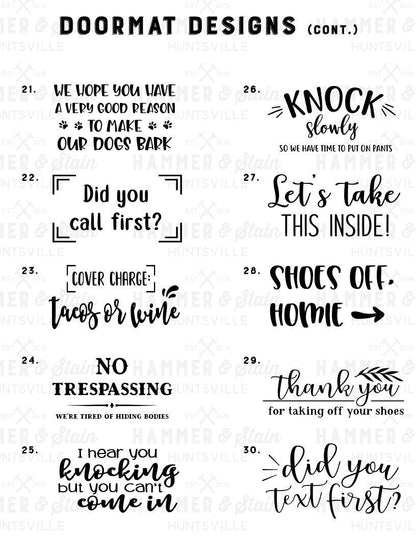 DOORMAT DESIGNS (CONT.)
21.
WE HOPE YOU HAVE
A VERY GOOD REASON
TO MAKE
OUR DOGS BARK
22.
Did you
call first?
23.
COVER CHARGE:
tacos or wine
24.
NO
TRESPASSING
WE'RE TIRED OF HIDING BODIES
25.
I hear you
knocking
but you can't
come in
26.
KNOCK
slowly
SO WE HAVE TIME TO PUT ON PANTS
27.
Let's take
THIS INSIDE!
28.
SHOES OFF.
HOME
29.
thank you
for taking off your shoes
30.
did you
text first?
HAMMER & Stain
HUNTSVILLE